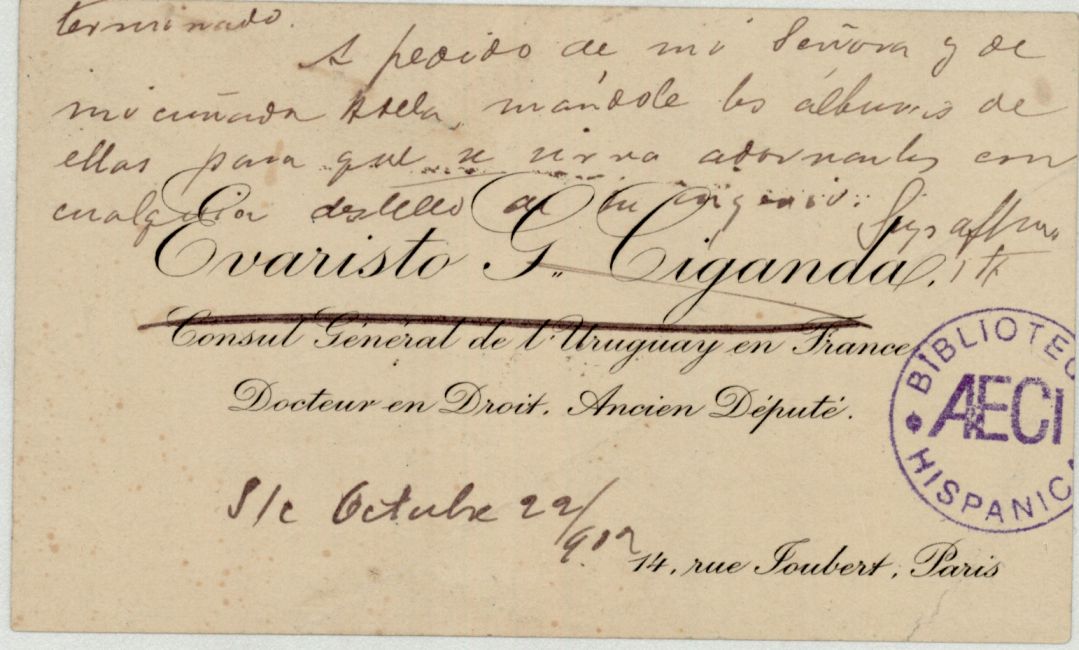 terminado.
A pedido de mi Señora y de
mi cuñada Adela, mándole los álbums de
ellas para que se sirva adornarles con
cualquier destello de su ingenio. Suyo affmo
Evaristo G. Ciganda.
Consul Général de l'Uruguay en France
Docteur en Droit. Ancien Député.
S/c Octubre 22/902
14, rue Joubert, Paris
BIBLIOTECA
AECI
HISPANICA